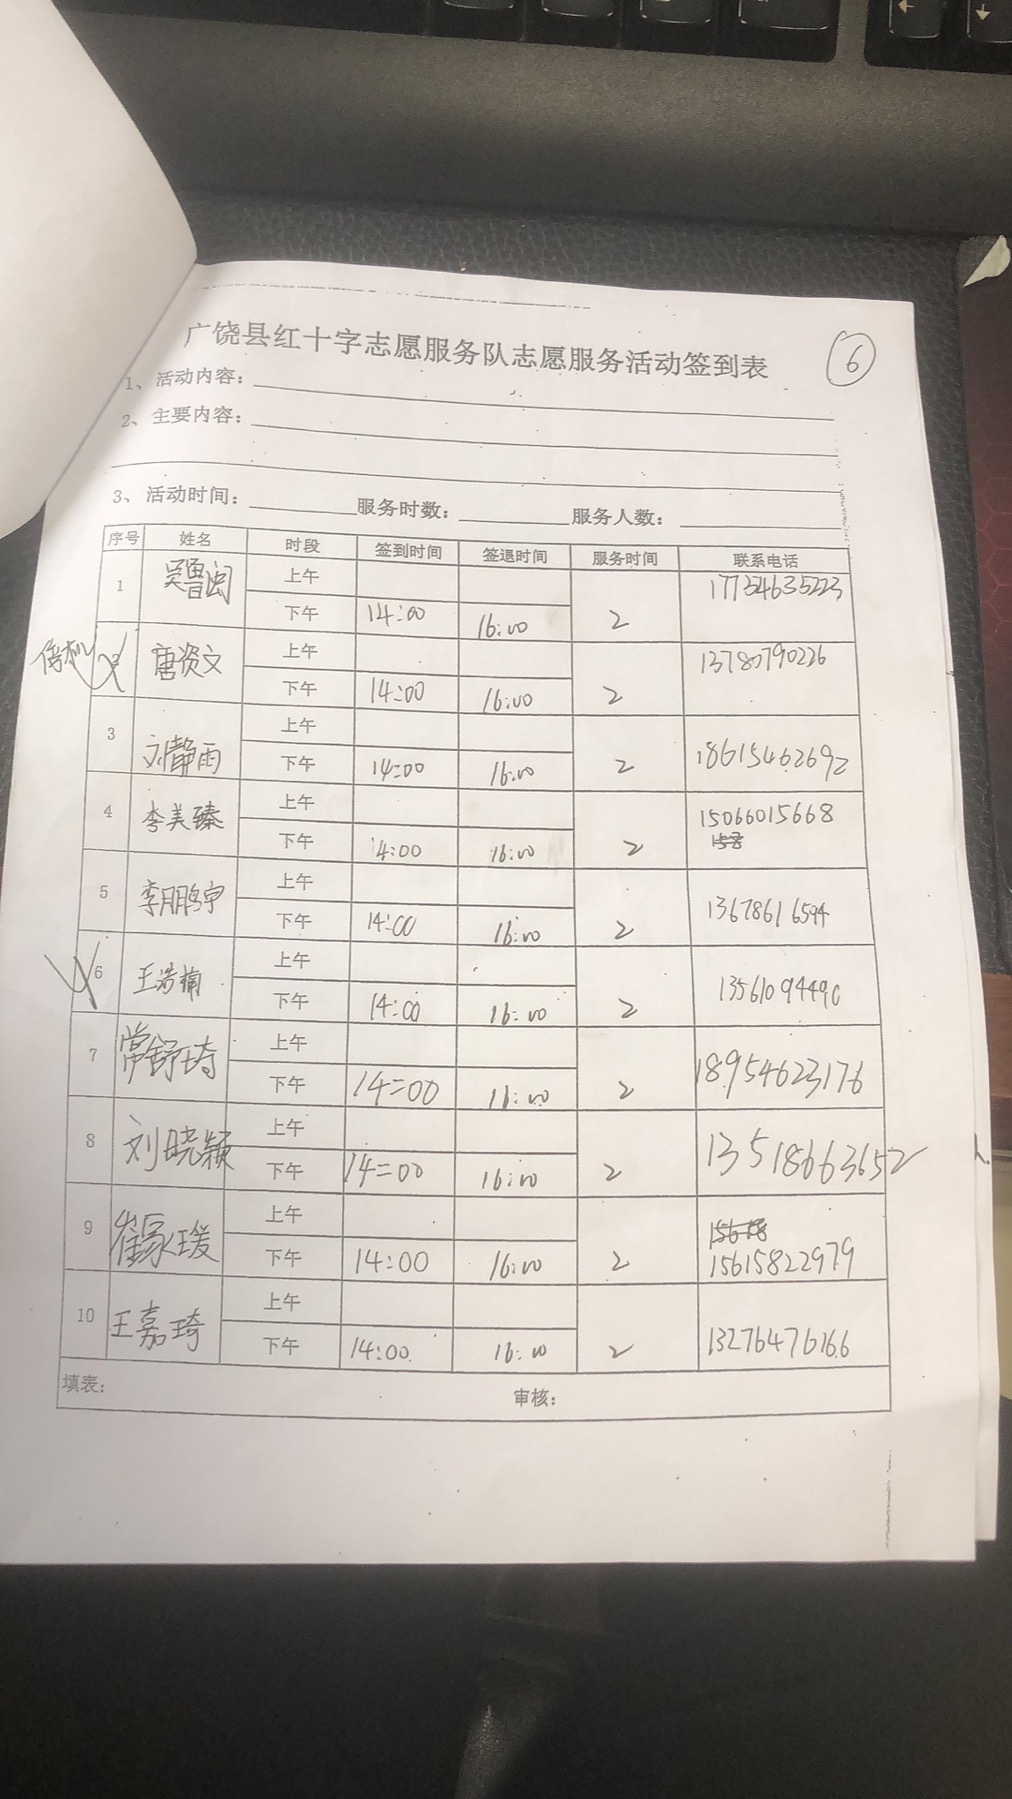 广饶县红十字志愿服务队志愿服务活动签到表
6
1、活动内容：
2、主要内容：
3、活动时间： 服务时数： 服务人数：
序号 姓名 时段 签到时间 签退时间 服务时间 联系电话
1 吴鲁闽 上午 17754635223
下午 14:00 16:00 2
唐资文 上午 13780790226
下午 14:00 16:00 2
3 刘静雨 上午
下午 14:00 16:00 2 18615462692
4 李美臻 上午 15066015668
下午 14:00 16:00 2
5 李鹏宇 上午
下午 14:00 16:00 2 13678616594
6 王浩楠 上午
下午 14:00 16:00 2 13561094490
7 常舒琦 上午
下午 14:00 16:00 2 18954623176
8 刘晓颖 上午
下午 14:00 16:00 2 13518663652
9 崔家瑗 上午
下午 14:00 16:00 2 15615822979
10 王嘉琦 上午
下午 14:00 16:00 2 13276476166
填表： 审核：